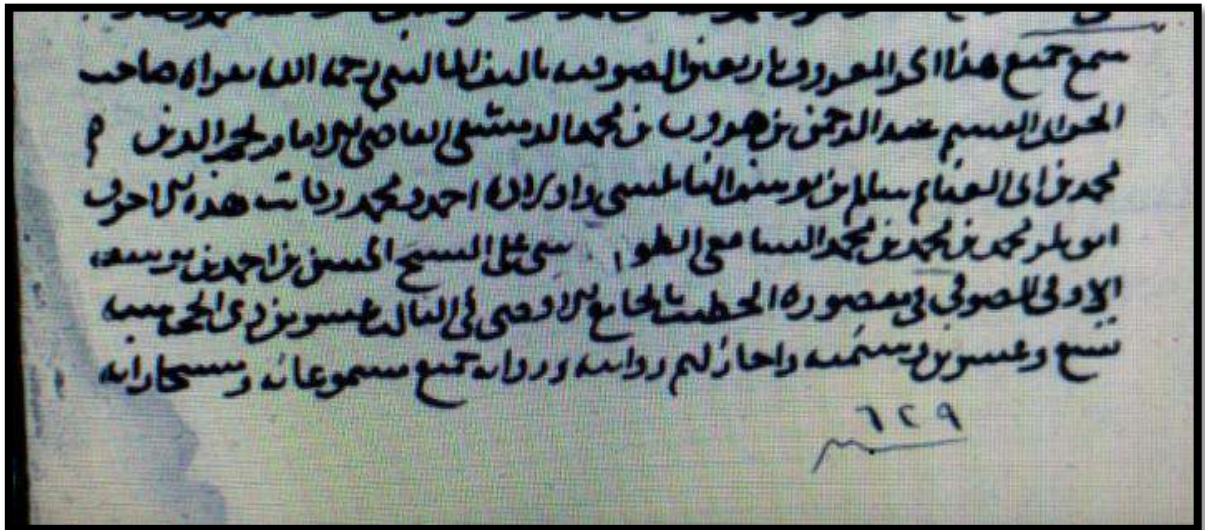 سمع جميع هذا الجزء المعروف باربعين الصوفيه تاليف الماليني رحمه الله بقراه صاحب
الجزء ابى القسم عبد الرحمن بن هرون بن محمد الدمشقي القاضي الامام نجم الدين
محمد بن ابى الغنايم سالم بن يوسف النابلسي وابراه احمد ومحمد وكاتب هذه الاحرف
ابو بكر محمد بن محمد بن محمد الشافعي الطو على الشيخ الحسن بن احمد بن يوسف
الاوقي الصوفي في مقصوره الخطيب بالجامع الاقصى في الثالث عشر من ذي الحجه سنه
تسع وعشرين وستمئه واجاز لهم روايته وروايه جميع مسموعاته ومستجازاته
٦٢٩